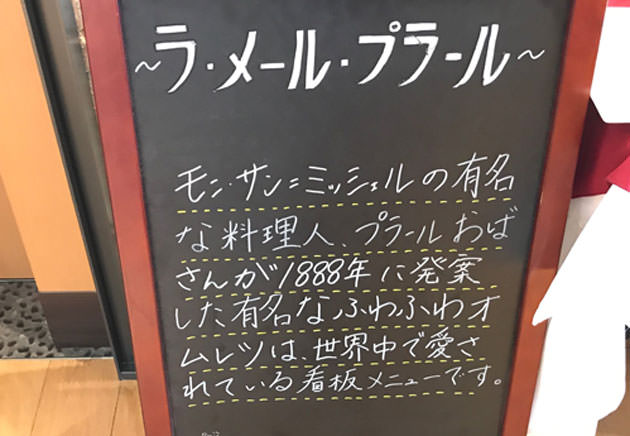 ~ラ・メール・プラール~
モン・サン=ミッシェルの有名
な料理人、プラールおば
さんが1888年に発案
した有名なふわふわオ
ムレツは、世界中で愛さ
れている看板メニューです。